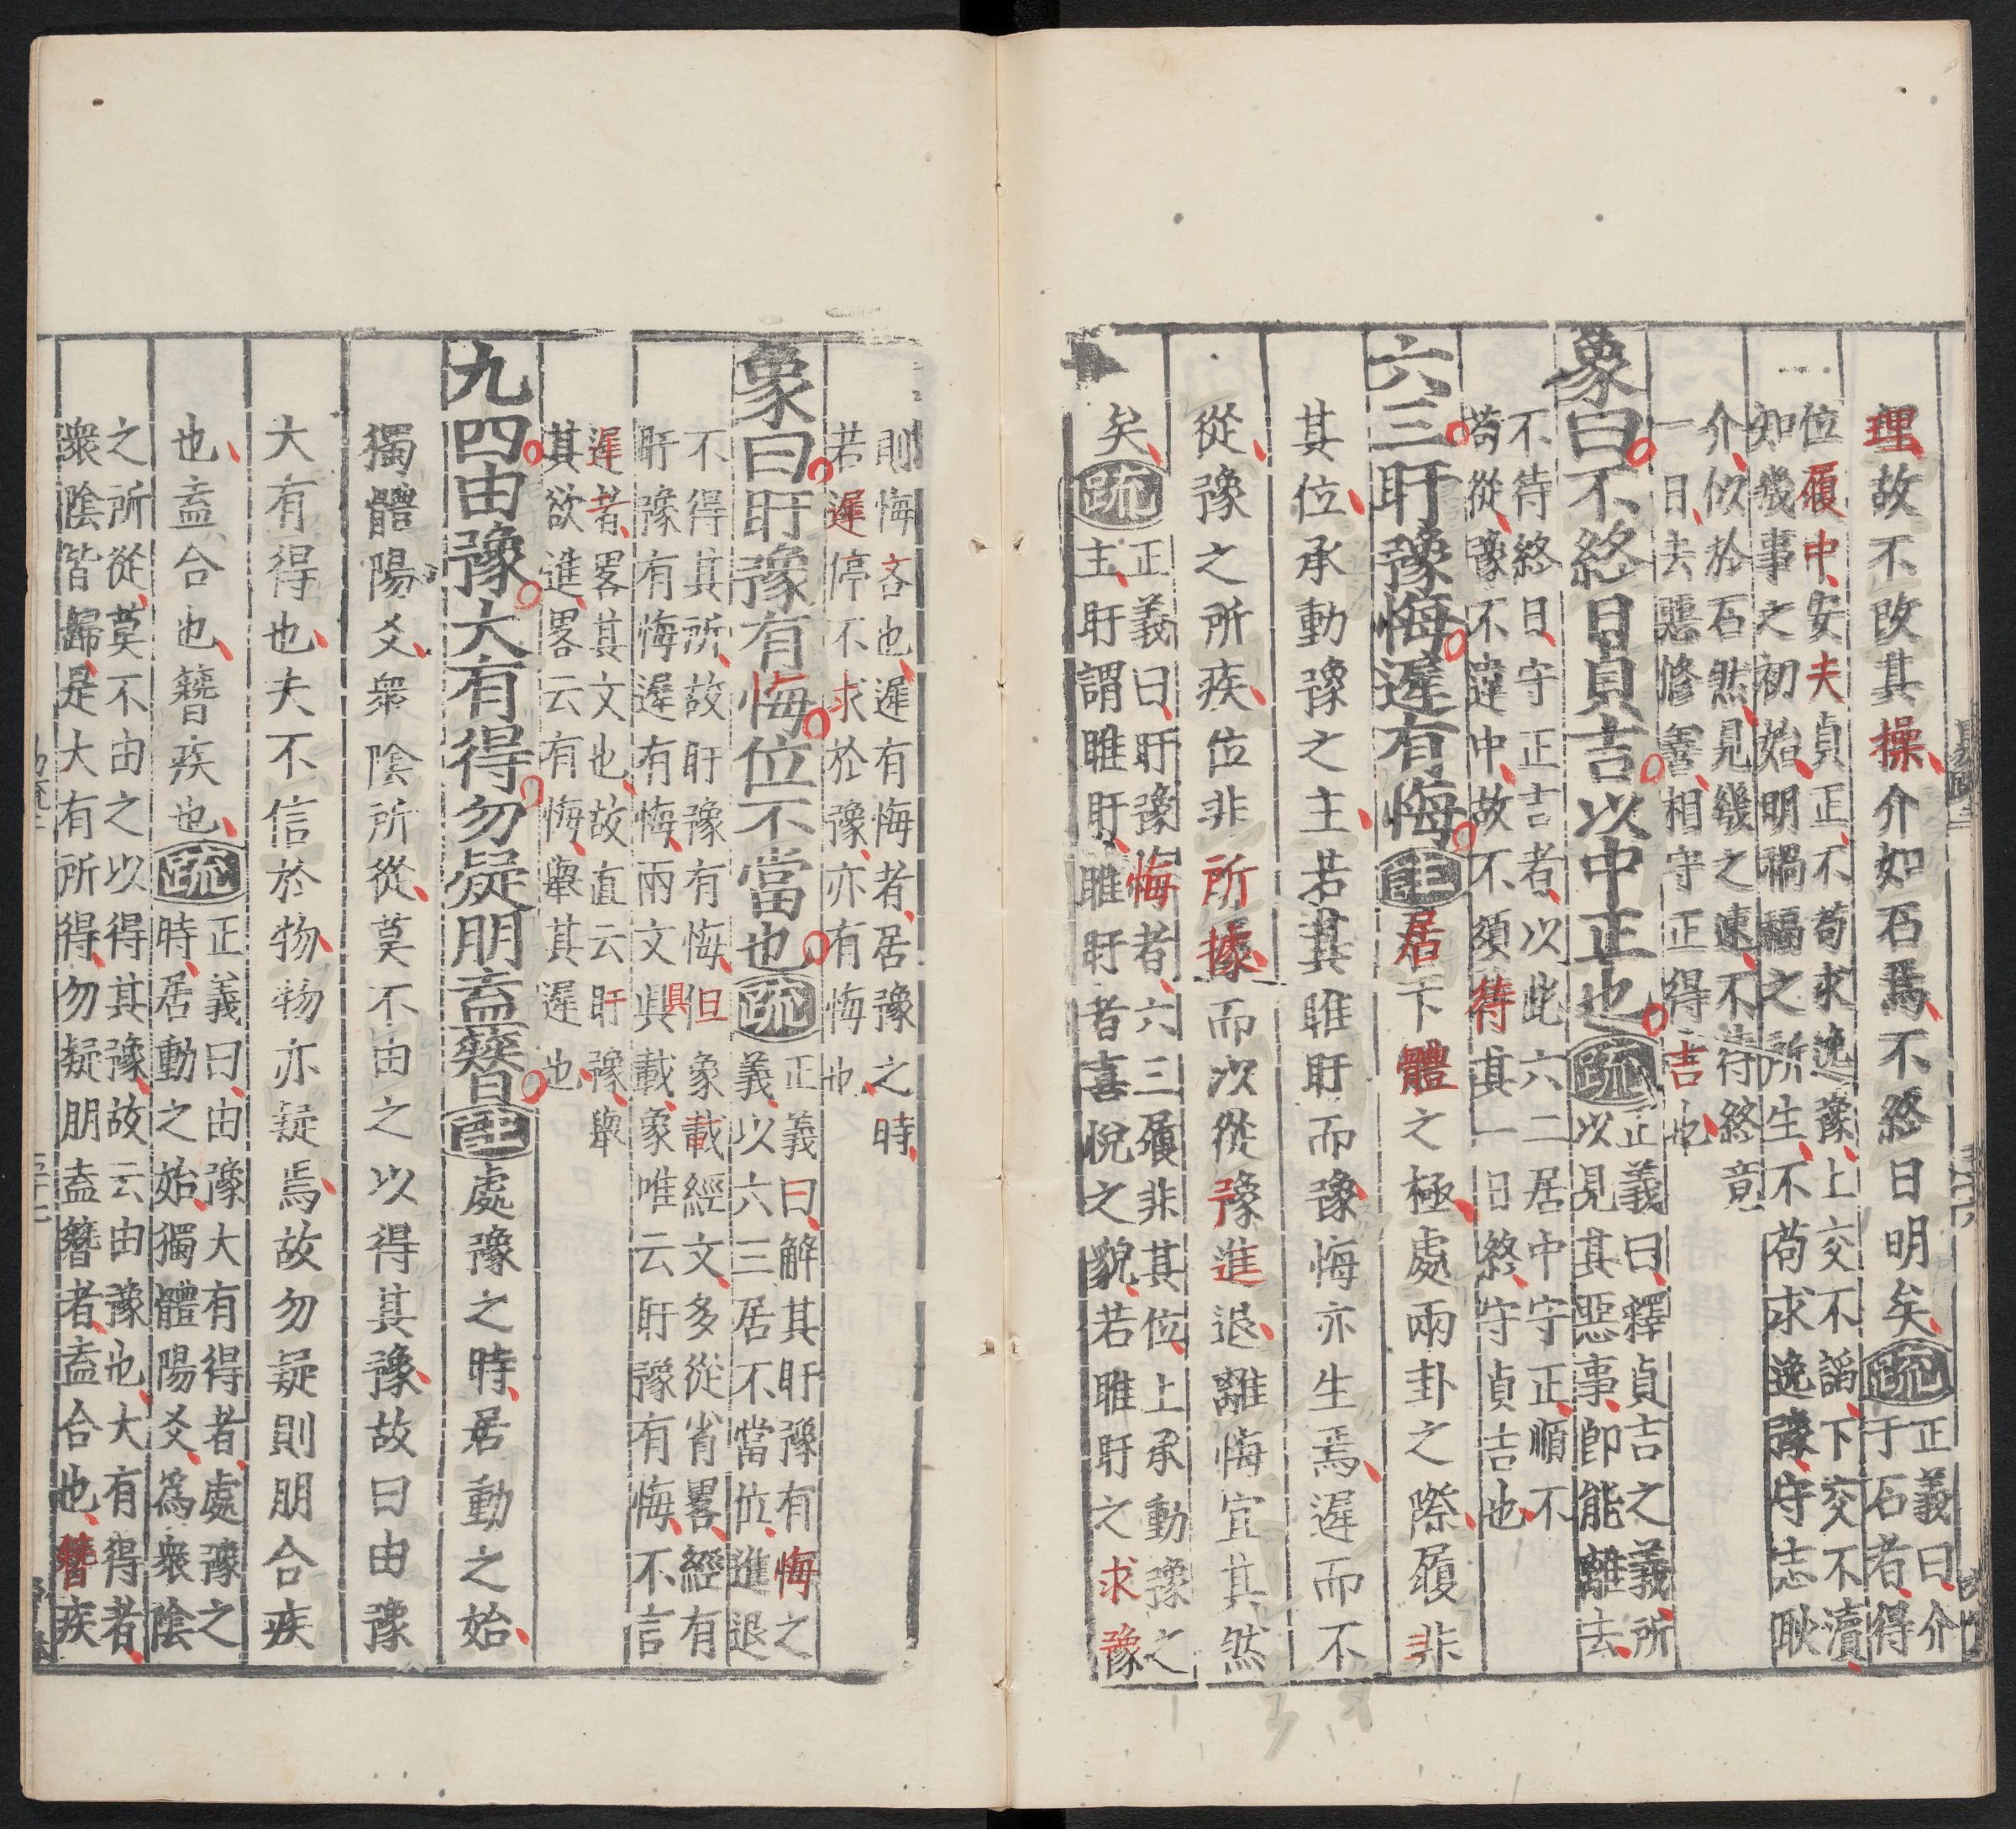 理故不改其操介如石焉不終日明矣疏正義曰介
于石者得
位履中安夫貞正不苟求逸豫上交不諂下交不瀆
知幾事之初始明禍福之所生不苟求逸豫守志耿
介似於石然見幾之速不待終竟
一日去惡修善相守正得吉也
象曰不終日貞吉以中正也疏正義曰釋貞吉之義所
以見其惡事即能離去
不待終日守正吉者以此六二居中守正順不
苟從豫不違中故不須待其一日終守貞吉也
六三盱豫悔遲有悔注居下體之極處兩卦之際履非
其位承動豫之主若其睢盱而豫悔亦生焉遲而不
從豫之所疾位非所據而次從豫進退離悔宜其然
矣疏正義曰盱豫悔者六三履非其位上承動豫之
主盱謂睢盱睢盱者喜悅之貌若睢盱之求豫
則悔吝也遲有悔者居豫之時
若遲停不求於豫亦有悔也
象曰盱豫有悔位不當也疏正義曰解其盱豫有悔之
義以六三居不當位進退
不得其所故盱豫有悔但象載經文多從省畧經有
盱豫有悔遲有悔兩文具載象唯云盱豫有悔不言
遲者畧其文也故直云盱豫舉
其欲進畧云有悔舉其遲也
九四由豫大有得勿疑朋盍簪注處豫之時居動之始
獨體陽爻衆陰所從莫不由之以得其豫故曰由豫
大有得也夫不信於物物亦疑焉故勿疑則朋合疾
也盍合也簪疾也疏正義曰由豫大有得者處豫之
時居動之始獨體陽爻爲衆陰
之所從莫不由之以得其豫故云由豫也大有得者
衆陰皆歸是大有所得勿疑朋盍簪者盍合也簪疾